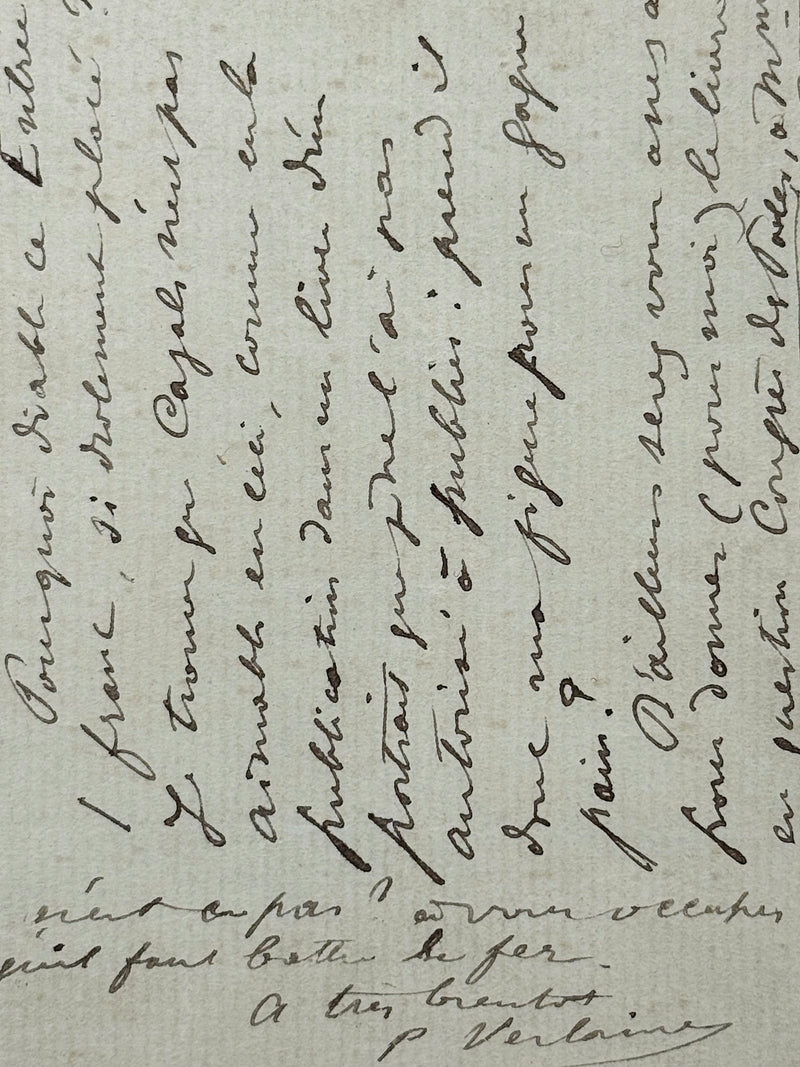 Pourquoi diable ce Entrée
1 franc, si drolement placé ?
Je trouve que Cazals n'est pas
aimable en ceci, comme en la
publication dans un livre d'un
portrait que je ne l'ai pas
autorisé à publier : prend il
donc ma figure pour un gagne
pain ?
D'ailleurs serez vous assez
pour donner (pour moi) le livre
en question Congrès des Poètes, à M
n'est ce pas ? à vous occuper
qu'il faut battre le fer.
A très bientot
P Verlaine